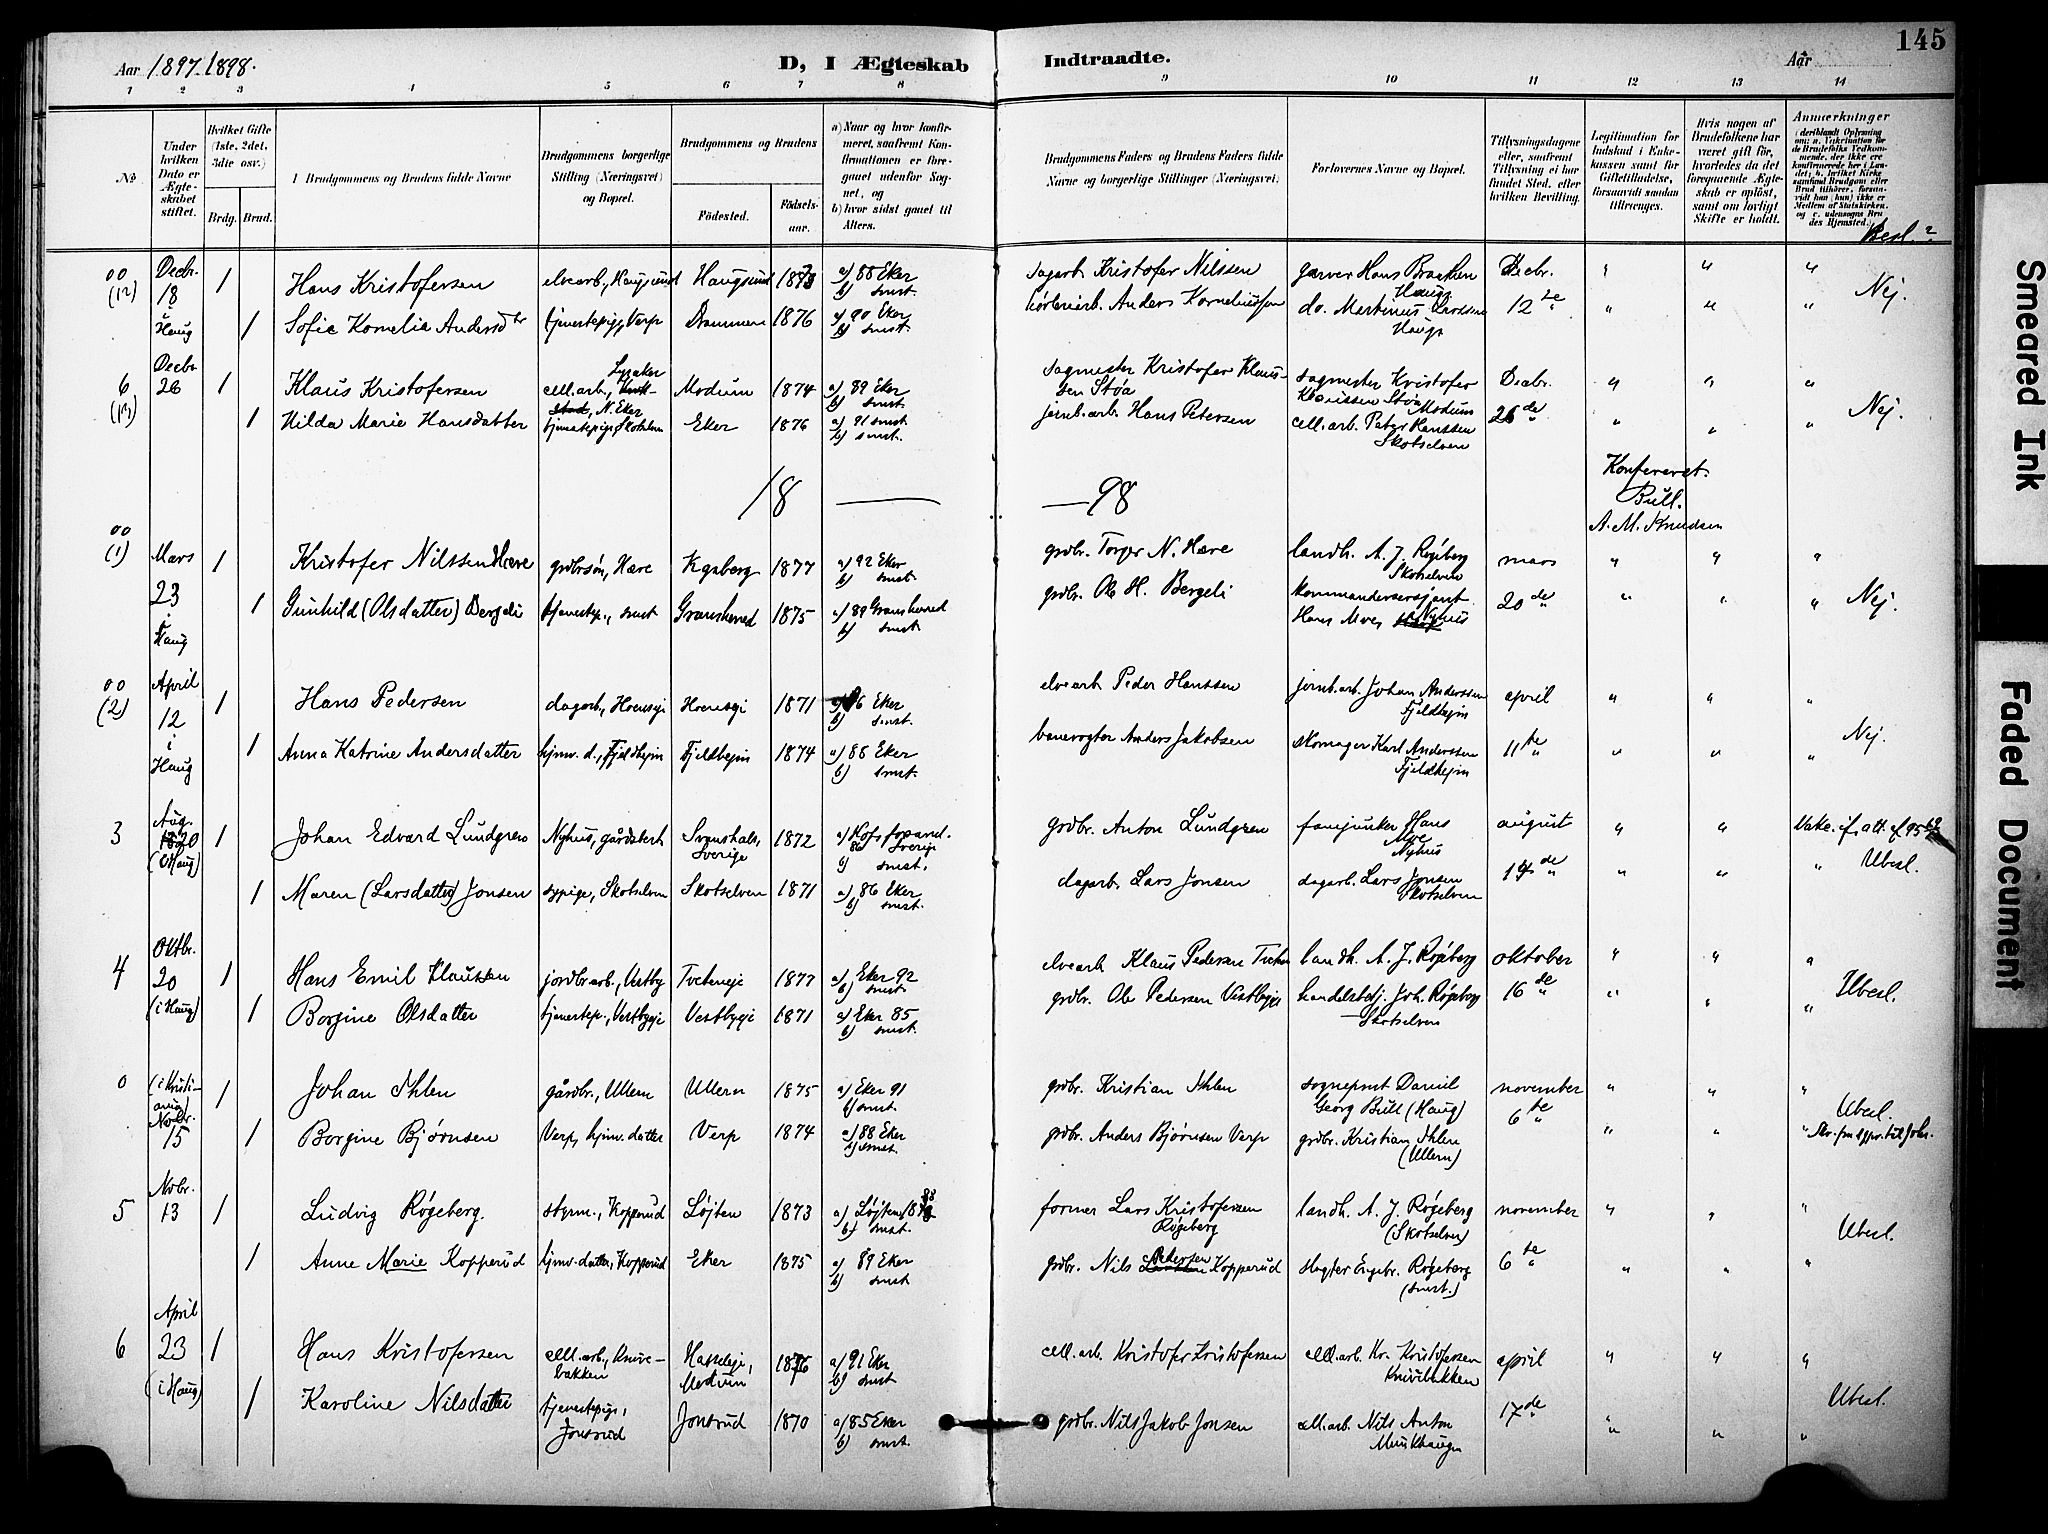 145
Aar 1897. 1898.
D, I Ægteskab Indtraadte.
Aar
1 2 3 4 5 6 7 8 9 10 11 12 13 14
No
Under hvilken Dato er Ægteskabet stiftet.
Hvilket Gifte (1ste, 2det, 3die osv.)
Brdg. Brud.
Brudgommens og Brudens fulde Navne
Brudgommens borgerlige Stilling (Næringsvei) og Bopæl.
Brudgommens og Brudens
Fødested.
Fødselsaar.
a) Naar og hvor konfirmeret, saafremt Konfirmationen er foregaaet udenfor Sognet, og
b) hvor sidst gaaet til Alters.
Brudgommens Faders og Brudens Faders fulde Navne og borgerlige Stillinger (Næringsvei)
Forlovernes Navne og Bopæl.
Tillysningsdagene eller, saafremt Tillysning ei har fundet Sted, efter hvilken Bevilling.
Legitimation for Indskud i Enkekassen samt for Giftetilladelse, forsaavidt saadan tiltrænges.
Hvis nogen af Brudefolkene har været gift før, hvorledes da det foregaaende Ægteskab er opløst, samt om lovligt Skifte er holdt.
Anmerkninger
Besl.?
00 (12) Decbr. 18 i Haug 1 Hans Kristofersen elvearb., Haugsund Haugsund 1873 a) 88 Eker b) smst. dagarb. Kristofer Nilssen garver Hans Braathen Haugs Decbr. " " " Nej.
1 Sofie Kornelia Andersdtr tjenestepige, Verp Drammen 1876 a) 90 Eker b) smst. Anders Korneliussen do. Martinus Haugs 12te " " "
6 (13) Decbr. 26 1 Klaus Kristofersen cell.arb., Lysaker N. Eker Modum 1874 a) 89 Eker b) smst. sagmester Kristofer Klaussen Støa sagmester Kristofer Støa Modum Decbr. " " " Nej.
1 Hilda Marie Hansdatter tjenestepige, Skotselven Eker 1876 a) 91 smst b) smst. jernb.arb. Hans Petersen cell.arb. Peter Hanssen Skotselven 26de " " "
18 — — 98
Konfereret.
Bull.
A. M. Knudsen
00 (1) Mars 23 i Haug 1 Kristofer Nilssen Hære grdbrsøn, Hære Kgsberg 1877 a) 92 Eker b) smst. grdbr. Torger N. Hære landh. A. J. Røgeberg Skotselven mars " " " Nej.
1 Gunhild (Olsdatter) Bergeli tjenestep., smst Gransherred 1875 a) 89 Gransherred b) smst. grdbr. Ole H. Bergeli kommandersersjant Hans Moe, Nyhus 20de " " "
00 (2) April 12 i Haug 1 Hans Pedersen dagarb., Horensgi Horensgi 1871 a) 86 Eker b) smst. elvearb Peder Hanssen jernb.arb. Johan Anderssen Fjeldhejm april " " " Nej.
1 Anna Katrine Andersdatter hjmv. d., Fjeldhejm Fjeldhejm 1874 a) 88 Eker b) smst. banevogter Anders Jakobsen skomager Karl Anderssen Fjeldhejm 11te " " "
3 Aug. 20 (Haug) 1 Johan Edvard Lundgren Nyhus, gårdbest Svanshals, Sverige 1872 a) 86 Sverige b) smst. grdbr. Anton Lundgren fanejunker Hans Moe Nyhus august " " Vakc. if. att. af 95 Ubesl.
1 Maren (Larsdatter) Jonsen sypige, Skotselven Skotselven 1871 a) 86 Eker b) smst. dagarb. Lars Jonsen dagarb. Lars Jonsen Skotselven 14de " " "
4 Oktbr. 20 (i Haug) 1 Hans Emil Klaussen jordbrarb., Vestby Tveteneje 1877 a) Eker 92 b) smst. elvearb Klaus Pedersen landh. A. J. Røgeberg oktober " " " Ubesl.
1 Borgine Olsdatter tjenestep., Vestbygi Vestbygi 1871 a) Eker 85 b) smst. grdbr. Ole Pedersen Vestbygi handelsbetj. Joh. Røgeberg Skotselven 16de " " "
0 (i Kristiania) Novbr. 15 1 Johan Ihlen gårdbr., Ullern Ullern 1875 a) Eker 91 b) smst. grdbr. Kristian Ihlen sogneprest Daniel Georg Bull (Haug) november " " " Ubesl.
1 Borgine Bjørnsen Verp, hjmv. datter Verp 1874 a) 88 Eker b) smst. grdbr. Anders Bjørnsen Verp grdbr. Kristian Ihlen (Ullern) 6te " " "
5 Novbr. 13 1 Ludvig Røgeberg. styrm., Kopperud Løjten 1873 a) Løjten 1888 b) smst. former Lars Kristofersen Røgeberg landh. A. J. Røgeberg (Skotselven) november " " " Ubesl.
1 Anne Marie Kopperud hjmv. datter, Kopperud Eker 1875 a) 89 Eker b) smst. grdbr. Nils Pedersen Kopperud slagter Engebr. Røgeberg (smst.) 6te " " "
6 April 23 (i Haug) 1 Hans Kristofersen cell.arb., Knivebakken Hasseleje, Modum 1876 a) 91 Eker b) smst cell. arb. Kristofer Kristofersen cell.arb. Kr. Kristofersen Knivebakken april " " " Ubesl.
1 Karoline Nilsdatter tjenestepige, Jonsrud Jonsrud 1870 a) 85 Eker b) smst. grdbr. Nils Jakob Jonsen cell.arb. Nils Anton Munkhaugen 17de " " "
Smeared Ink
Faded Document